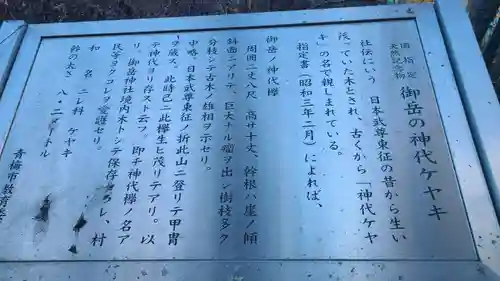 国指定
天然記念物
御岳の神代ケヤキ
社伝にいう 日本武尊東征の昔から生い
茂っていた木とされ、古くから「神代ケヤ
キ」の名で親しまれている。
指定書(昭和三年二月)によれば、
御岳ノ神代欅
周囲二丈八尺 高サ十丈、幹根ハ崖ノ傾
斜面ニアリテ、巨大ナル瘤ヲ出シ樹枝多ク
分枝シテ古木ノ雄相ヲ示セリ。
中略、日本武尊東征ノ折此山ニ登リテ甲冑
ヲ蔵ス。此時已ニ此欅生ヒ茂リテアリ。以
テ神代ヨリ存スト云フ。即チ神代欅ノ名ア
リ、御岳神社境内木トシテ保存セラレ、村
民等ヨクコレヲ愛護セリ。
和 名 ニレ科 ケヤキ
幹の太さ 八・二メートル
青梅市教育委